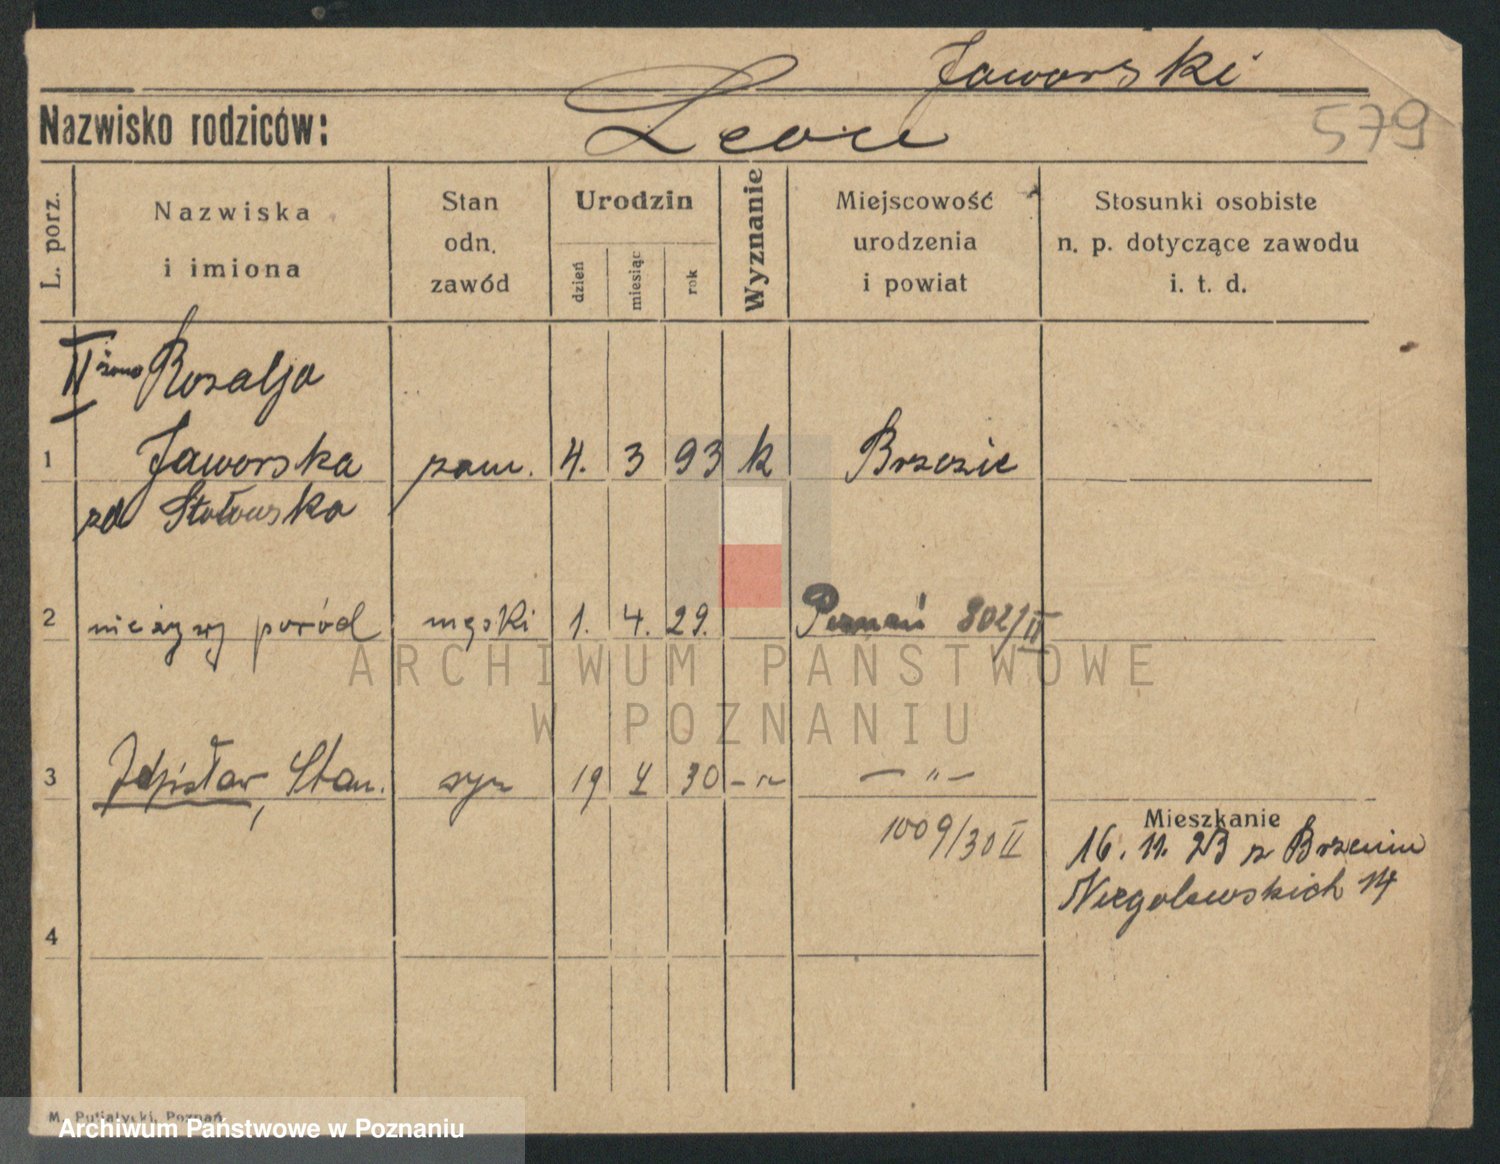 Jaworski
Nazwisko rodziców: Leon
579
L. porz.
Nazwiska
i imiona
Stan
odn.
zawód
Urodzin
dzień
miesiąc
rok
Wyznanie
Miejscowość
urodzenia
i powiat
Stosunki osobiste
n. p. dotyczące zawodu
i. t. d.
II żona Rozalja
1 Jaworska zam. 4. 3 93 k Brzezie
zd Stołowska
2 nieżywy poród męski 1. 4. 29. Poznań 802/II
ARCHIWUM PAŃSTWOWE
W POZNANIU
3 Zdzisław, Stan. syn 19 30 - " - - " -
Mieszkanie
1009/30 II
16. 11. 23 z
Niegolewskich 14
4
M. Putiatycki, Poznań
Archiwum Państwowe w Poznaniu